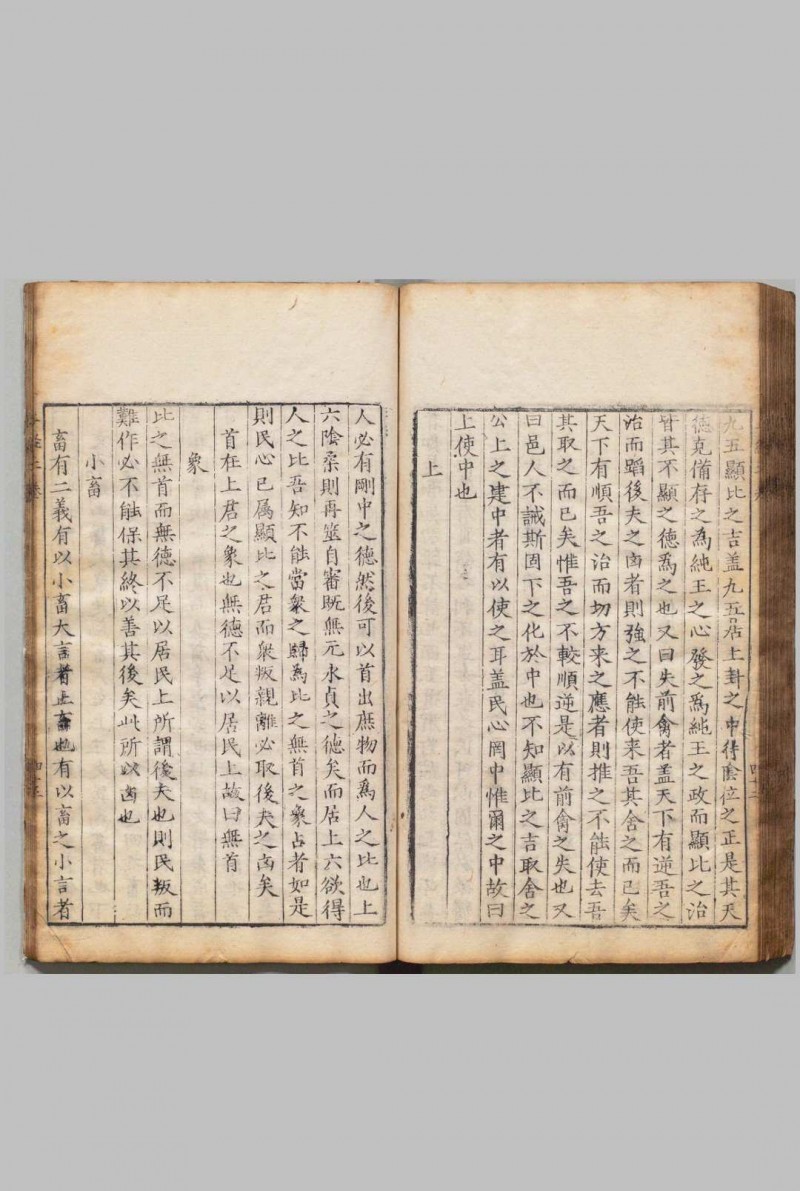 九五顯比之吉盖九五居上卦之中得陰位之正是其天
德克備存之為純王之心發之為純王之政而顯比之治
皆其不顯之德為之也又曰失前禽者盖天下有逆吾之
治而蹈後夫之凶者則強之不能使来吾其舍之而已矣
天下有順吾之治而切方来之應者則推之不能使去吾
其取之而已矣惟吾之不較順逆是以有前禽之失也又
曰邑人不誡斯固下之化於中也不知顯比之吉取舍之
公上之建中者有以使之耳盖民心罔中惟爾之中故曰
上使中也
上
人必有剛中之德然後可以首出庶物而爲人之比也上
六陰柔則再筮自審既無元永貞之德矣而居上六欲得
人之比吾知不能當衆之歸為比之無首之象占者如是
則民心已属顯比之君而衆叛親離必取後夫之凶矣
首在上君之象也無德不足以居民上故曰無首
象
比之無首而無德不足以居民上所謂後夫也則民叛而
難作必不能保其終以善其後矣此所以凶也
小畜
畜有二義有以小畜大言者止畜也有以畜之小言者